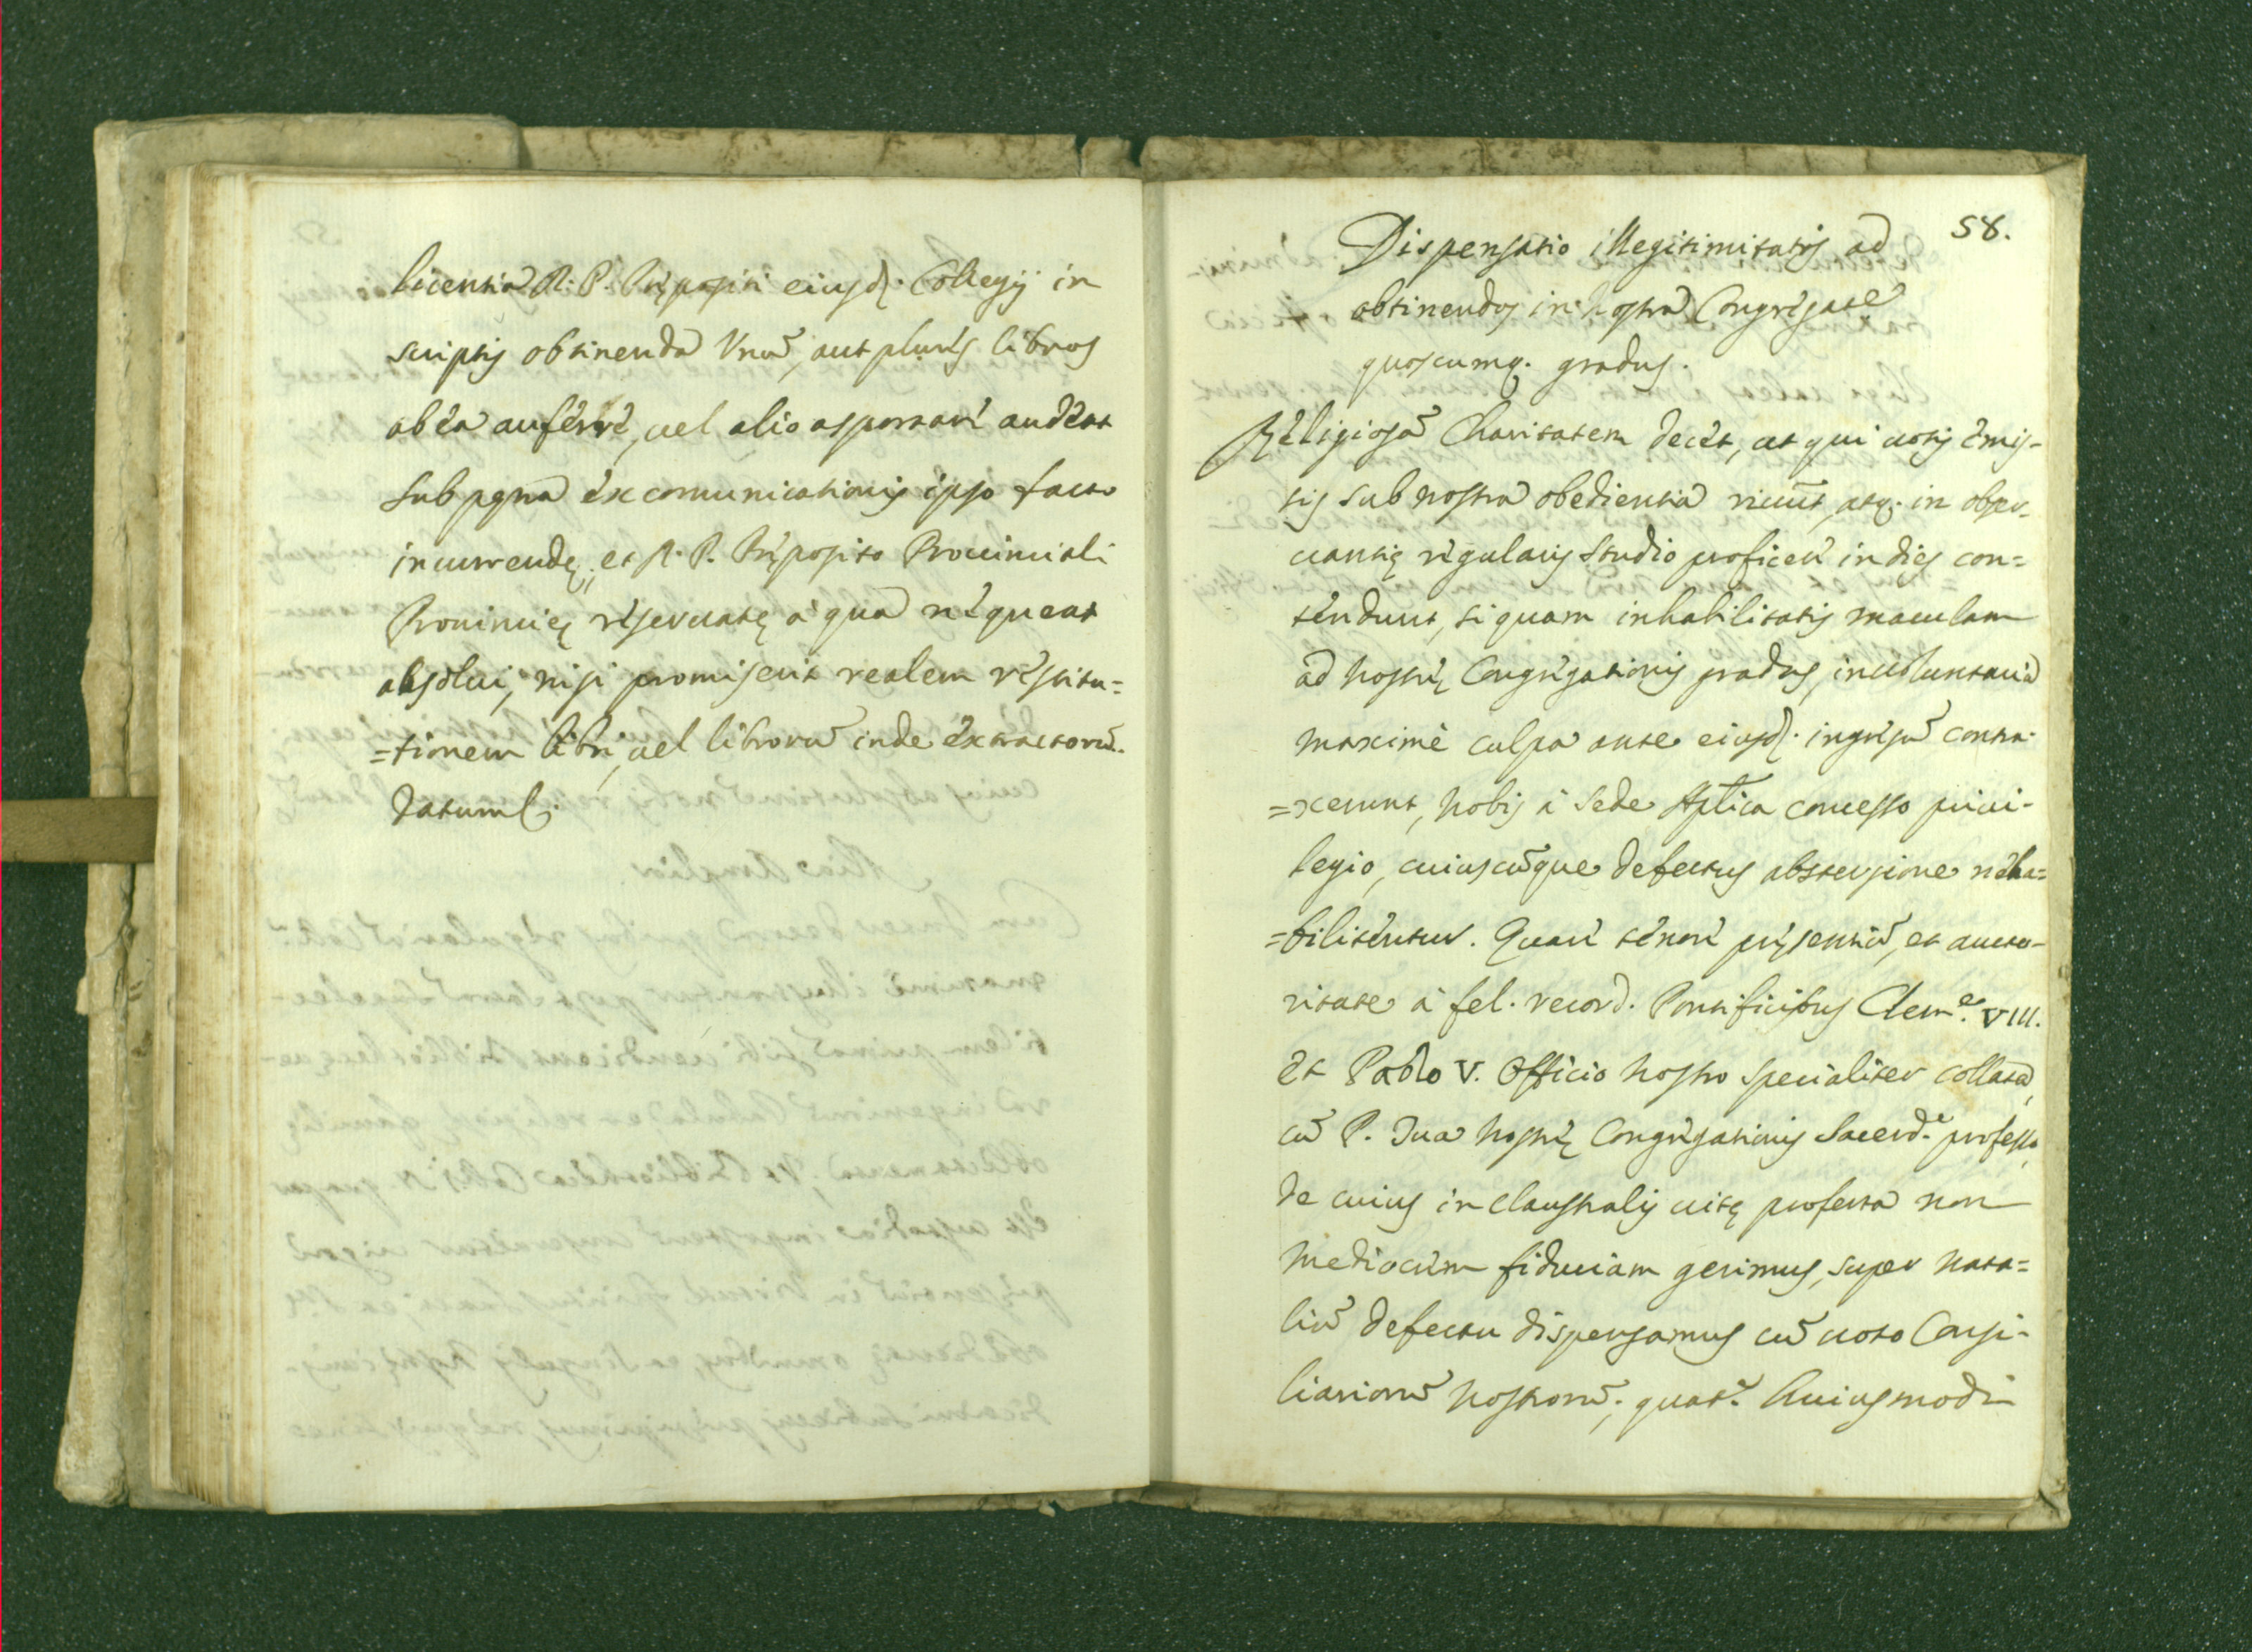 licentia R. P. Prępositi eiusd. Collegij in
scriptis obtinenda Vnū, aut plures libros
ab ea auferre, uel alio asportare audeat
sub pęna excomunicationis ipso facto
incurrendę, et R. P. Pręposito Prouinciali
Prouincię reseruatę à qua nequeat
absolui, nisi promiserit realem restitu=
=tionem libri, uel librorū inde extractorū.
Datum &.
58.
Dispensatio illegitimitatis ad
obtinendos in nostra Congregate
quoscumq. gradus.
Religiosā Charitatem decet, ut qui uotis emis-
sis sub nostra obedientia uiuūt, atq. in obser-
uantię regularis studio proficere in dies con=
tendunt, si quam inhabilitatis maculam
ad nostrę Congregationis gradus, inuoluntaria
maximè culpa ante eiusd. ingressū contra-
=xerunt, nobis à Sede Aplica concesso priui-
legio, cuiuscūque defectus abstersione reha=
=bilitentur. Quare tenore pręsentiū, et aucto-
ritate à fel. record. Pontificibus Cleme. VIII.
et Paolo V. Officio nostro specialiter collata,
cū P. Tua nostrę Congregationis Sacerd.e professo,
de cuius in claustralis uitę profectu non
mediocrem fiduciam gerimus, super nata=
liū defectu dispensamus cū uoto Consi-
liariorū nostrorū; quat.s huiusmodi